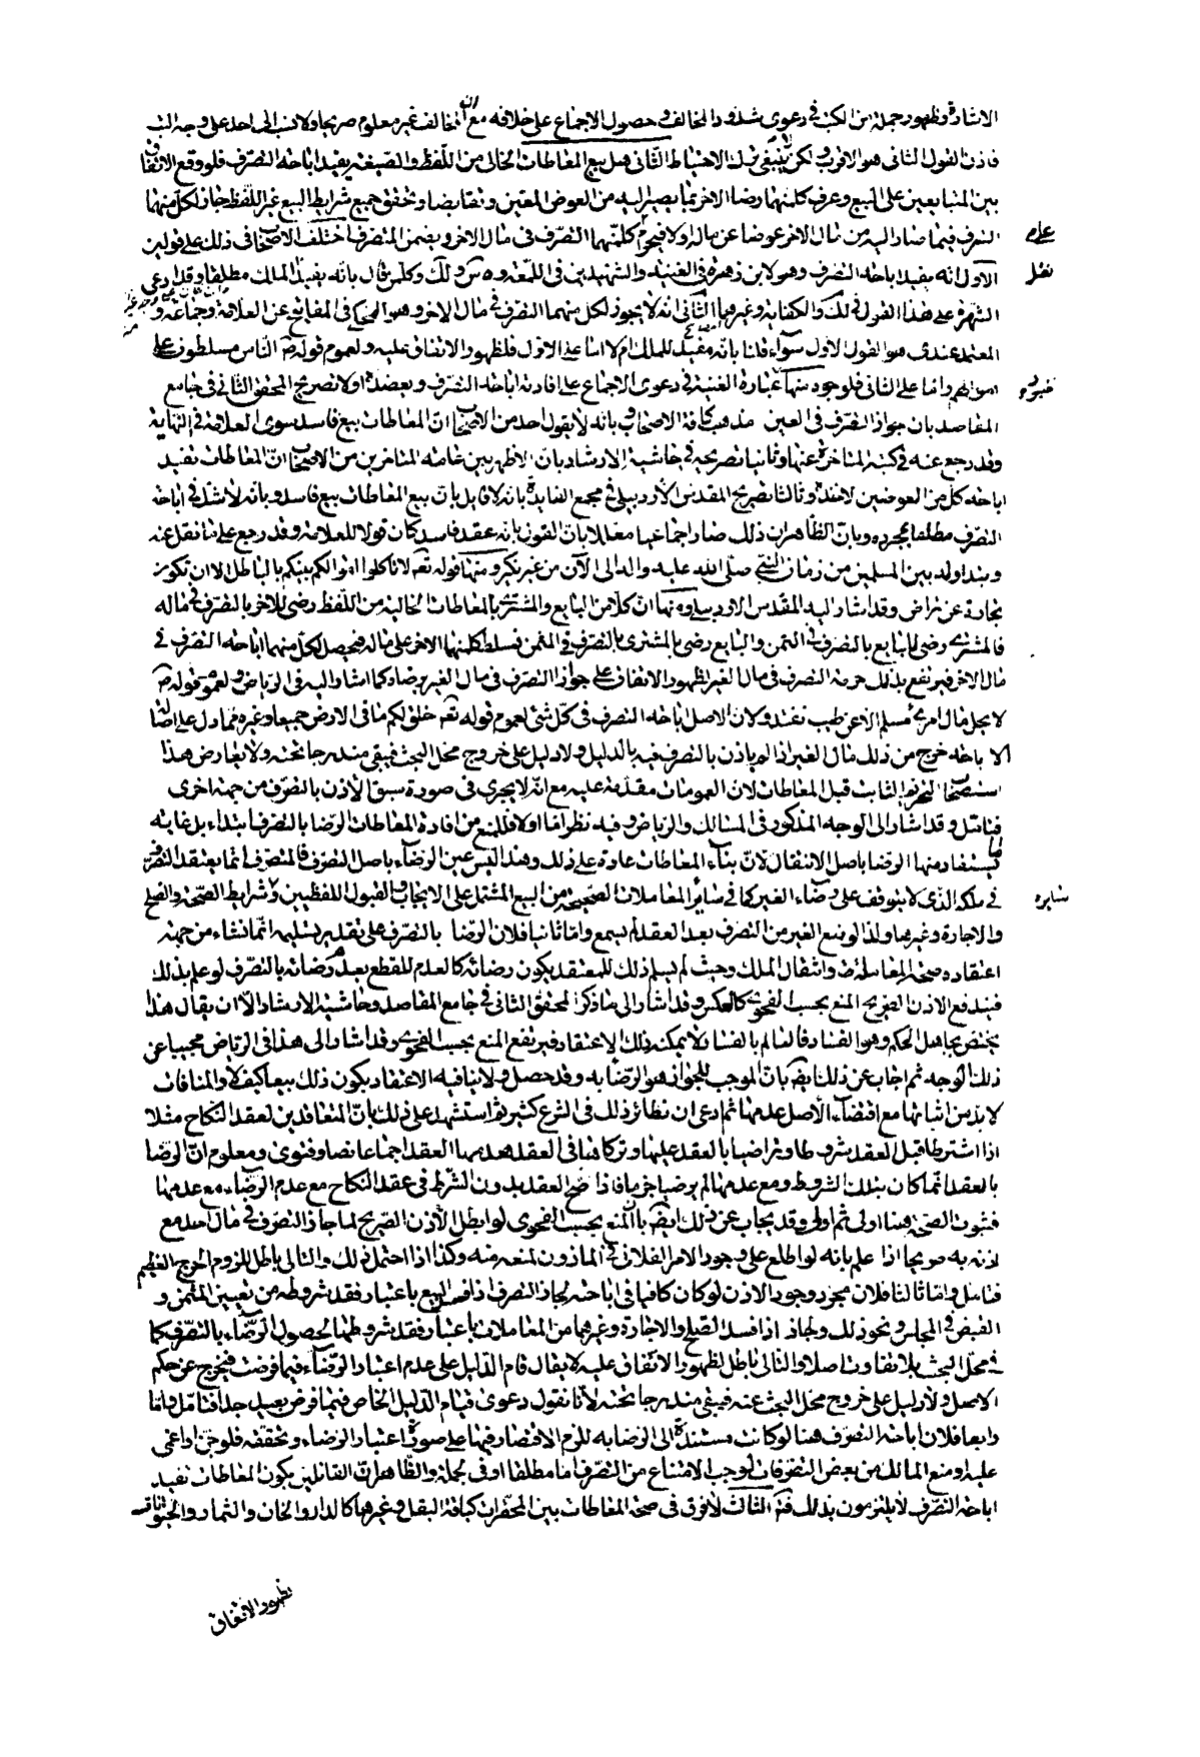 الاشارة وظهور جملة من الكتب في دعوى شذوذ المخالف وحصول الاجماع على خلافه مع ان المخالف غير معلوم صريحا ولا نسب الى احد على وجه البت
فاذن القول الثاني هو الاقرب ولكن ينبغي الاحتياط الثاني هل بيع المعاطات الخالي من اللفظ والصيغة يفيد اباحة التصرف فلو وقع الاتفاق
بين المتبايعين على البيع وعرف كل منهما رضا الاخر بما يصير اليه من العوض المعين وتقابضا وتحقق جميع شرايط البيع غير اللفظ جاز لكل منهما
التصرف فيما صار اليه من مال الاخر عوضا عن ماله اولا فيحرم كل منهما التصرف في مال الاخر ويضمن المتصرف اختلف الاصحاب في ذلك على قولين
الاول انه يفيد اباحة التصرف وهو لابن زهرة في الغنية والشهيدين في اللمعة وضه وس ولك وكل من قال بانه يفيد الملك مطلقا وقد ادعى
الشهرة على هذا القول في لك والكفاية وغيرهما الثاني انه لا يجوز لكل منهما التصرف في مال الاخر وهو المحكي في المفاتيح عن العلامة وجماعة و
المعتمد عندي هو القول الاول سواء قلنا بانه مفيد للملك ام لا اما على الاول فلظهور الاتفاق عليه ولعموم قوله ص الناس مسلطون على
اموالهم واما على الثاني فلوجوه منها عبارة الغنية في دعوى الاجماع على افادته اباحة التصرف ويعضده اولا تصريح المحقق الثاني في جامع
المقاصد بان جواز التصرف في العين مذهب كافة الاصحاب وبانه لا يقول احد من الاصحاب ان المعاطات بيع فاسد سوى العلامة في النهاية
وقد رجع عنه في كتبه المتاخرة عنها وثانيا تصريحه في حاشية الارشاد بان الاظهر بين عامة المتاخرين من الاصحاب ان المعاطات تفيد
اباحة كل من العوضين لاخذه وثالثا تصريح المقدس الاردبيلي في مجمع الفايدة بانه لا قايل بان بيع المعاطات بيع فاسد وبانه لا شك في اباحة
التصرف مطلقا بمجرده وبان الظاهر ان ذلك صار اجماعيا معللا بان القول بانه عقد فاسد كان قولا للعلامة وقد رجع على ما نقل عنه
وبتداوله بين المسلمين من زمان النبي صلى الله عليه واله الى الآن من غير نكير ومنها قوله تع لا تاكلوا اموالكم بينكم بالباطل الا ان تكون
تجارة عن تراض وقد اشار اليه المقدس الاردبيلي ومنها ان كلا من البايع والمشتري بالمعاطات الخالية من اللفظ رضى للاخر بالتصرف في ماله
فالمشتري رضى للبايع بالتصرف في الثمن والبايع رضى للمشتري بالتصرف في المثمن فسلط كل منهما الاخر على ماله فيحصل لكل منهما اباحة التصرف في
مال الاخر فيرتفع بذلك حرمة التصرف في مال الغير لظهور الاتفاق على جواز التصرف في مال الغير برضاه كما اشار اليه في الرياض ولعموم قوله ص
لا يحل مال امرئ مسلم الا عن طيب نفسه ولان الاصل اباحة التصرف في كل شئ لعموم قوله تع خلق لكم ما في الارض جميعا وغيره مما دل على اصالة
الاباحة خرج من ذلك مال الغير اذا لم ياذن بالتصرف فيه بالدليل ولا دليل على خروج محل البحث فيبقى مندرجا تحته ولا يعارض هذا
استصحاب التحريم الثابت قبل المعاطات لان العمومات مقدمة عليه مع انه لا يجري في صورة سبق الاذن بالتصرف من جهة اخرى
فتامل وقد اشار الى الوجه المذكور في المسالك والرياض وفيه نظر اما اولا فللمنع من افادة المعاطات الرضا بالتصرف ابتداء بل غاية
ما يستفاد منها الرضا باصل الانتقال لان بناء المعاطات عادة على ذلك وهذا ليس عين الرضاء باصل التصرف فالمتصرف انما يعتقد التصرف
في ملكه الذي لا يتوقف على رضاء الغير كما في ساير المعاملات الصحيحة من البيع المشتمل على الايجاب والقبول اللفظيين وشرايط الصحة والصلح
والاجارة وغيرها ولذا لو منع الغير من التصرف بعد العقد لم يسمع واما ثانيا فلان الرضا بالتصرف على تقدير تسليمه انما نشاء من جهة
اعتقاده صحة المعاملة وانتقال الملك وحيث لم يسلم ذلك للمعتقد يكون رضائه كالعدم للقطع بعدم رضائه بالتصرف لو علم بذلك
فيندفع الاذن الصريح المنع بحسب الفحوى كالعكس وقد اشار الى ما ذكر المحقق الثاني في جامع المقاصد وحاشية الارشاد الا ان يقال هذا
يختص بجاهل الحكم وهو الفساد فالعالم بالفساد لا يمكنه ذلك الاعتقاد فيرتفع المنع بحسب الفحوى وقد اشار الى هذا في الرياض مجيبا عن
ذلك الوجه ثم اجاب عن ذلك ايضا بان الموجب للجواز هو الرضا به وقد حصل ولا ينافيه الاعتقاد بكون ذلك بيعا كيف لا والمنافات
لا بد من اثباتها مع اقتضاء الاصل عدمها ثم ادعى ان نظائر ذلك في الشرع كثيرة واستشهد على ذلك بان المتعاقدين لعقد النكاح مثلا
اذا اشترطا قبل العقد شروطا وتراضيا بالعقد عليها وتركاها في العقد هدمها العقد اجماعا نصا وفتوى ومعلوم ان الرضا
بالعقد انما كان بتلك الشروط ومع عدمها لم يرضيا جزما فاذا صح العقد بدون الشرط في عقد النكاح مع عدم الرضاء مع عدمها
فثبوت الصحة هنا اولى ثم اولى وقد يجاب عن ذلك ايضا بان المنع بحسب الفحوى لو ابطل الاذن الصريح لما جاز التصرف في مال احد مع
اذنه به صريحا اذا علم بانه لو اطلع على وجود الامر الفلاني في الماذون لمنعه منه وكذا اذا احتمل ذلك والتالي باطل للزوم الحرج العظيم
فتامل واما ثالثا فلان مجرد وجود الاذن لو كان كافيا في اباحته لجاز التصرف اذا فسد البيع باعتبار فقد شروطه من تعيين المثمن و
القبض في المجلس ونحو ذلك ولجاز اذا فسد الصلح والاجارة وغيرهما من المعاملات باعتبار فقد شروطها لحصول الرضاء بالتصرف كما
في محل البحث بلا تفاوت اصلا والتالي باطل لظهور الاتفاق عليه لا يقال قام الدليل على عدم اعتبار الرضاء فيما فرضت فيخرج عن حكم
الاصل ولا دليل على خروج محل البحث عنه فيبقى مندرجا تحته لانا نقول دعوى قيام الدليل الخاص فيما فرض بعيد جدا فتامل واما
رابعا فلان اباحة التصرف هنا لو كانت مستندة الى الرضا به للزم الاقتصار فيها على صورة اعتبار الرضاء وتحققه فلو جن او اغمي
عليه او منع المالك من بعض التصرفات لوجب الامتناع من التصرف اما مطلقا او في الجملة والظاهر ان القائلين بكون المعاطات تفيد
اباحة التصرف لا يلتزمون بذلك فتم الثالث لا فرق في صحة المعاطات بين المحقرات كباقة البقل وغيرها كالدار والخان والثمار والحيوانات
لظهور الاتفاق